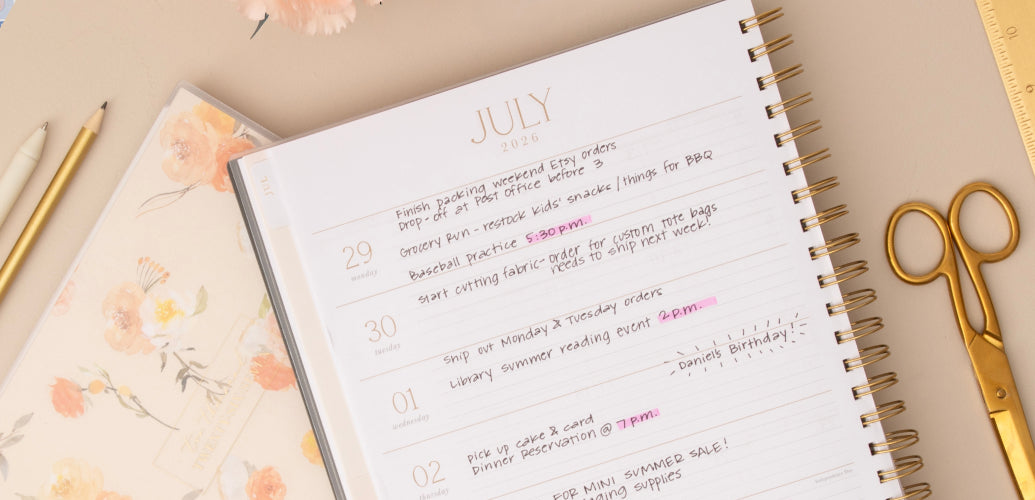 JULY
2026
Finish packing weekend Etsy orders
Drop-off at Post Office before 3
29
monday
Grocery Run - restock kids' snacks/things for BBQ
Baseball practice 5:30 p.m.
30
tuesday
Start cutting fabric - order for custom tote bags
needs to ship next week!
Ship out Monday & Tuesday orders
01
wednesday
Library summer reading event 2 p.m.
Daniel's Birthday!
02
thursday
Pick up cake & card
Dinner Reservation @ 7 p.m.
FOR MINI SUMMER SALE!
supplies
JUL
10
9